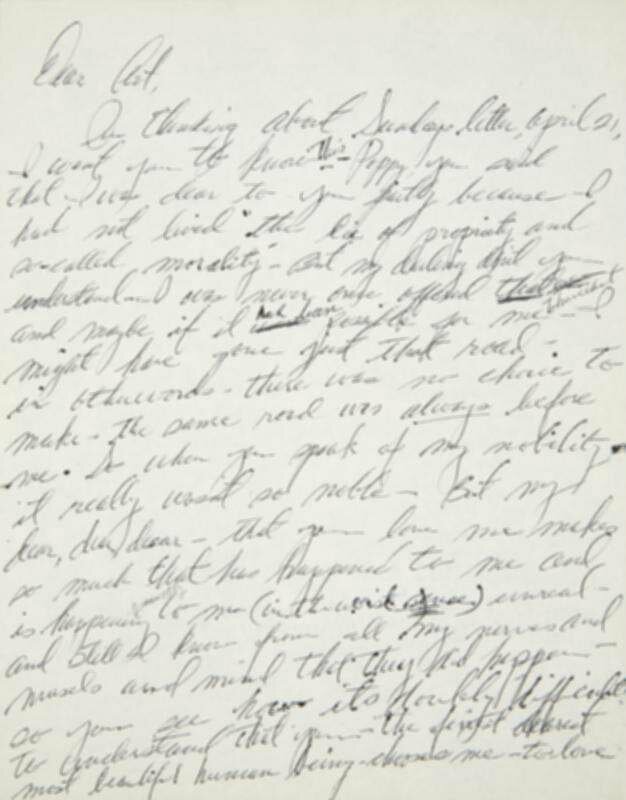 Dear Art,
Im thinking about Sundays letter, april 21,
I want you to know this - Poppy you said
that I was dear to you partly because I
had not lived "the lie of propriety and
so-called morality - But my darling dont you
understand - I was never once offered
and maybe if it had been possible for me - I
might have gone just that road -
in otherwords - there was no choice to
make - the same road was always before
me. So when you speak of my nobility
it really wasnt so noble - But my
dear, dear, dear - that you love me makes
so much that has happened to me and
is happening to me (in the unreal -
and still I know from all my nerves and
musels and mind that they did happen -
so you see how its doubly difficult
to understand that you - the finest dearest
most beautiful human being - chooses me - to love